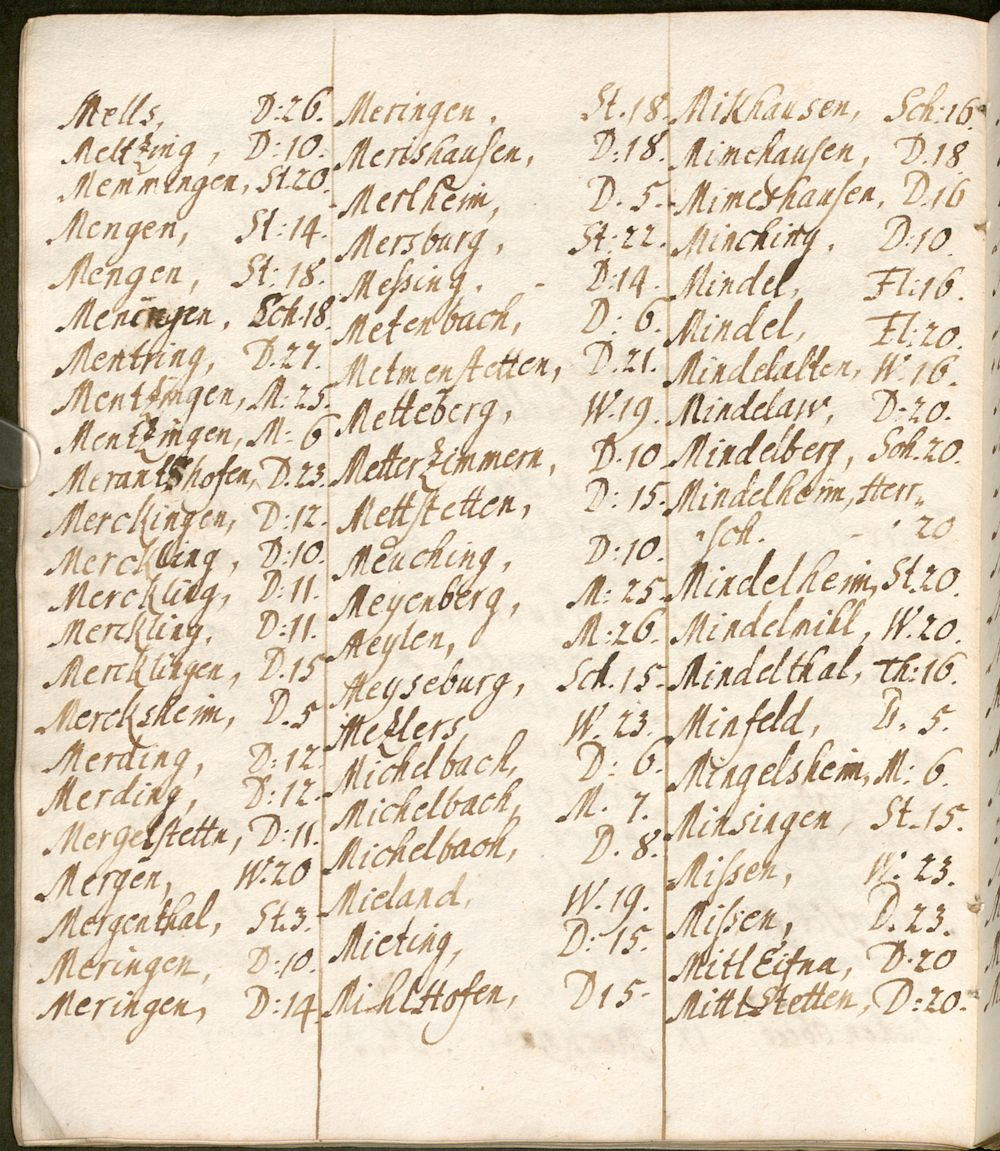 Mells, D:26.
Meltzing, D:10.
Memmingen, St.20.
Mengen, St:14.
Mengen, St:18.
Meningen, Sch.18.
Mentring, D.27.
Mentzingen, M:25.
Mentzingen, M:6
Merantshofen, D.23.
Merckingen, D:12.
Merckling, D:10.
Merckling, D:11.
Merckling, D:11.
Mercklingen, D.15
Mercksheim, D.5
Merding, D:12.
Merding, D:12.
Mergelstettn, D:11.
Mergen, W.20
Mergenthal, St.3.
Meringen, D:10.
Meringen, D:14.
Meringen. St.18.
Merishausen, D:18.
Merlheim, D.5
Mersburg, St:22.
Messing. D:14.
Metenbach, D:6.
Metmenstetten, D.21.
Metteberg, W.19.
Metterzimmern, D.10
Mettstetten, D:15.
Meuching, D:10.
Meyenberg, M:25
Meylen, M:26.
Meyseburg, Sch.15.
Mezlers, W.23.
Michelbach, D:6.
Michelbach, M.7.
Michelbach, D.8.
Mieland, W.19.
Mieting, D:15.
MihlHofen, D15
Mikhausen, Sch:16.
Mimehausen, D.18
Mimershausen, D.16
Minching, D:10.
Mindel, Fl:16.
Mindel, Fl:20.
Mindelalten, W.16.
Mindelaw, D.20.
Mindelberg, Sch.20.
Mindelheim, Herr„
sch. 20
Mindelheim, St.20.
Mindelmihl, W.20.
Mindelthal, Th:16.
Minfeld, D.5.
Mingelsheim, M:6.
Minsingen, St.15.
Missen, W.23.
Missen, D.23.
MitlEitna, D:20
MittlStetten, D:20.